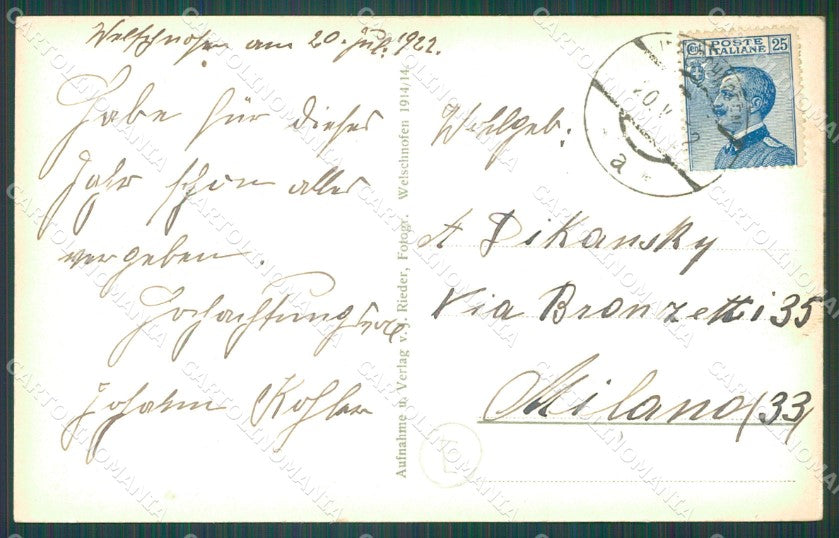 Welschnofen am 20. Jul. 1922.
Habe für dieses
Jahr schon alles
vergeben.
Hochachtungsvoll
Johann Kohler
Aufnahme u. Verlag v. J. Rieder, Fotogr. Welschnofen 1914/14
Wohlgeb:
A Dikansky
Via Bronzetti 35
Milano (33)
POSTE
ITALIANE 25
a
CARTOLINOMANIA